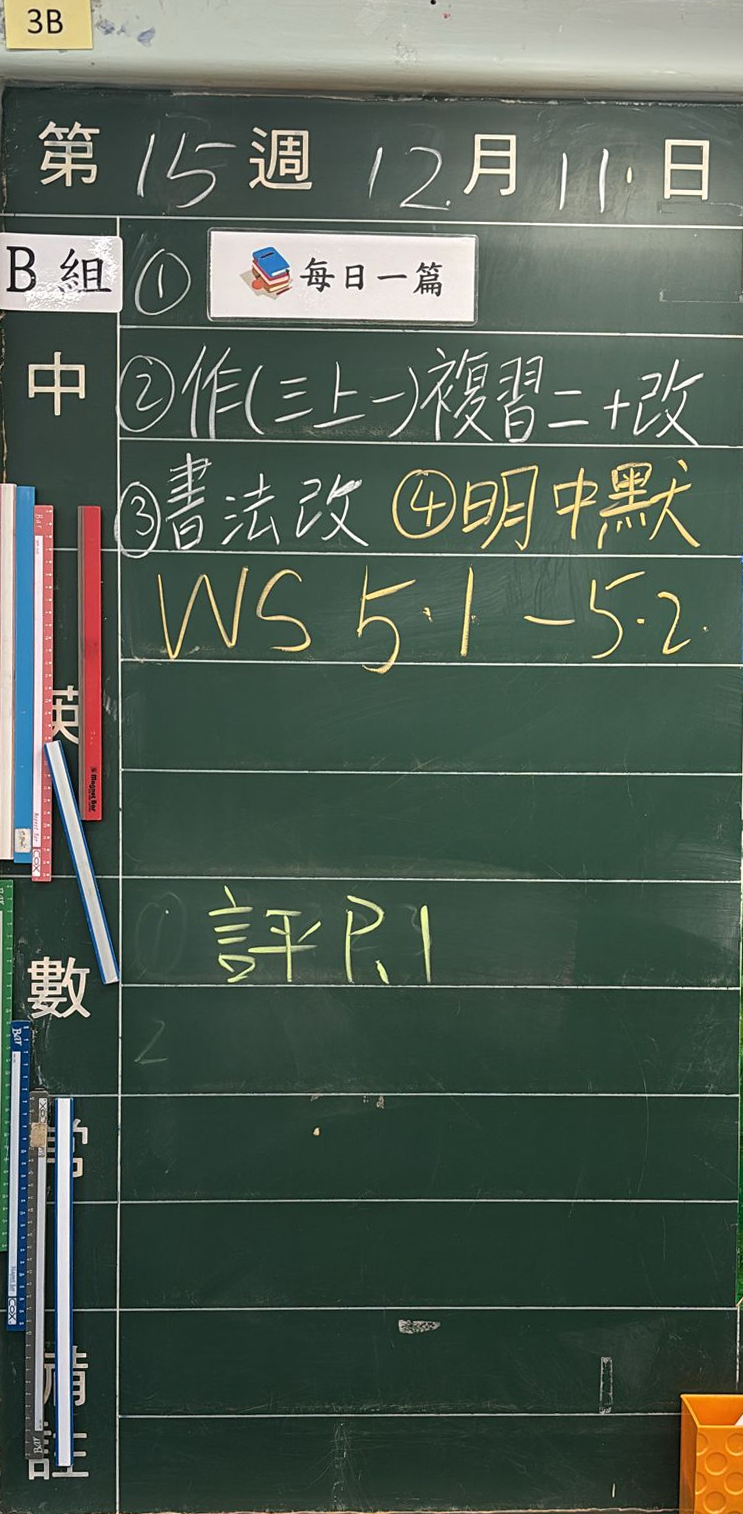 3B
第 15 週 12 月 11 日
B 組 ① 每日一篇
中 ②作(三上一)複習二+改
③書法改 ④明中默
WS 5.1 - 5.2
英
評 P.1
數
2
常
備
註